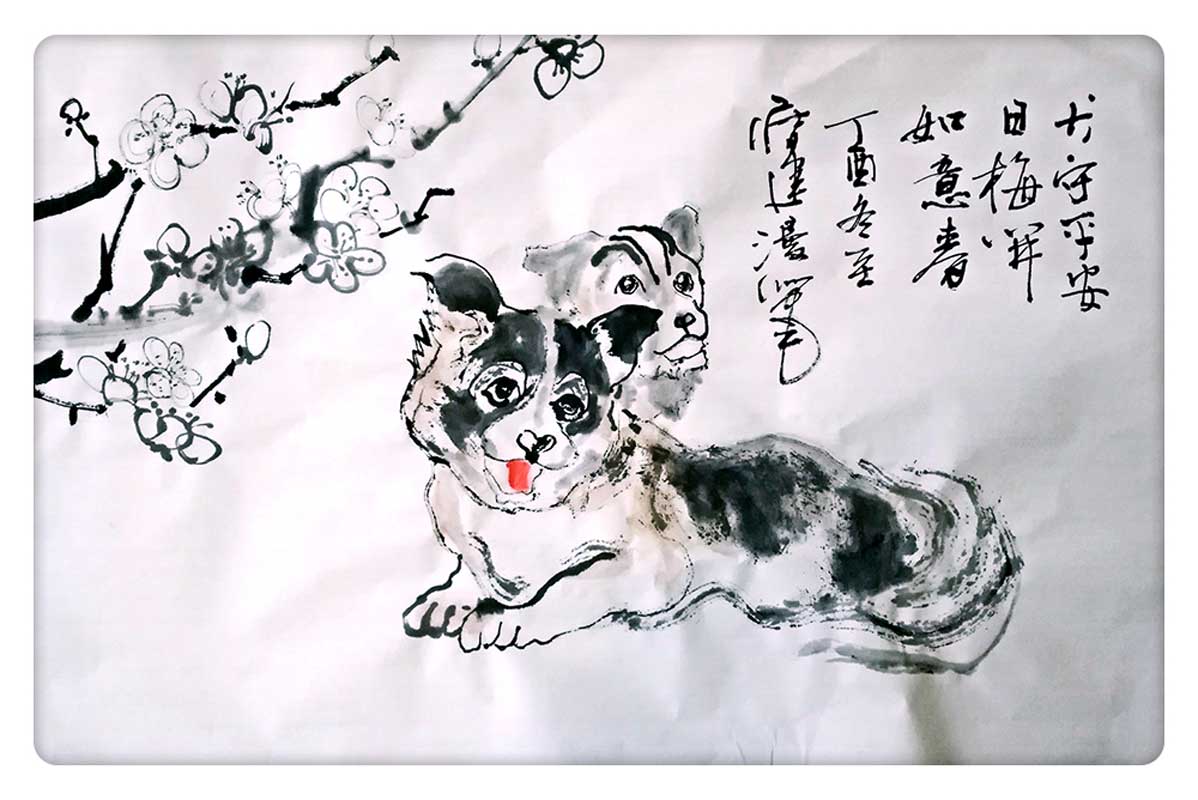 犬守平安
日梅开
如意春
丁酉冬至
建漫笔